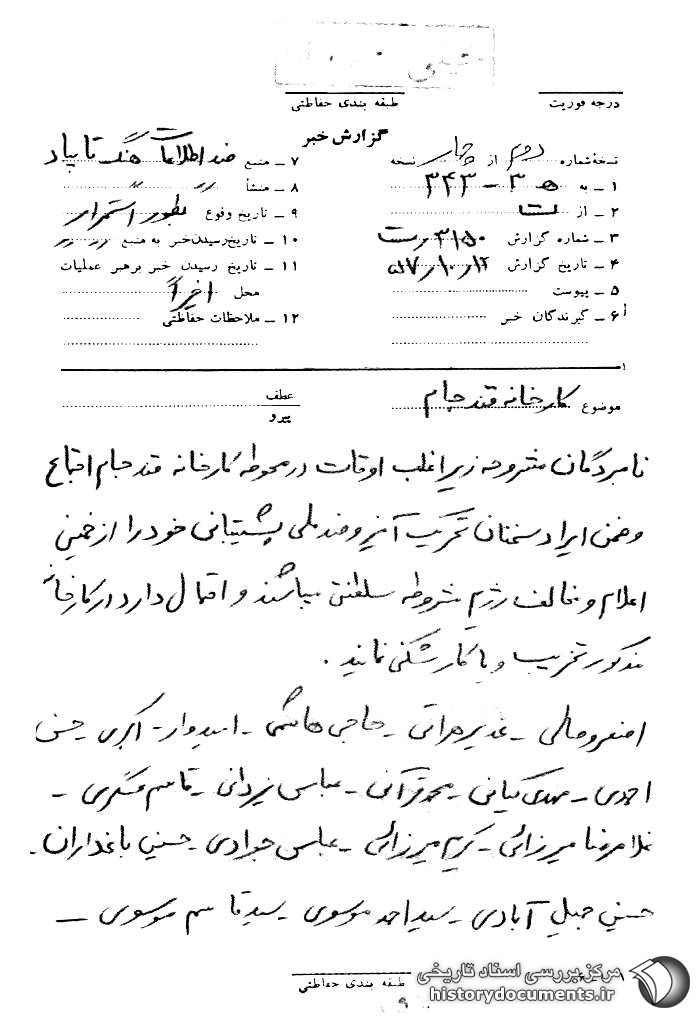 خیلی
درجه فوریت
طبقه بندی حفاظتی
گزارش خبر
نسخه شماره دوم از چهار نسخه
۱ - به ه ۳ - ۳۴۳
۲ - از ت
۳ - شماره گزارش ۳۱۵۰ ر ت
۴ - تاریخ گزارش ۱۲ ر ۱۰ ر ۵۷
۵ - پیوست
۶ - گیرندگان خبر
۷ - منبع ضد اطلاعات هنگ تایباد
۸ - منشأ " "
۹ - تاریخ وقوع بطور استمرار
۱۰ - تاریخ رسیدن خبر به منبع
۱۱ - تاریخ رسیدن خبر برهبر عملیات
محل اخیراً
۱۲ - ملاحظات حفاظتی
موضوع کارخانه قند جام
عطف
پیرو
نامبردگان مشروحه زیر اغلب اوقات در محوطه کارخانه قند جام اجتماع
و ضمن ایراد سخنان تحریک آمیز و ضد ملی پشتیبانی خود را از خمینی
اعلام و مخالف رژیم مشروطه سلطنتی میباشند و احتمال دارد در کارخانه
مذکور تخریب و یا کارشکنی نمایند.
اصغر وصالی - غدیر هراتی - حاجی هاشمی - امیدوار - اکبری - حسن
احمدی - مهدی کیانی - محمد قرآنی - عباس یزدانی - قاسم عسگری -
غلامرضا میرزائی - کریم میرزائی - عباس جوادی - حسین باغداران -
حسین جبل آبادی - سید احمد موسوی - سید قاسم موسوی -
طبقه بندی حفاظتی
مرکز بررسی اسناد تاریخی
historydocuments.ir